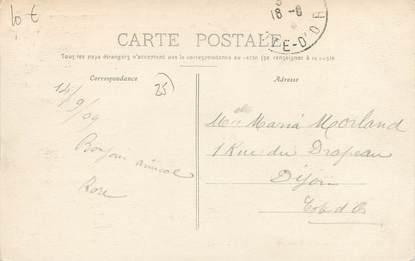 10 €
18-8
TE-D'OR
CARTE POSTALE
Tous les pays étrangers n'acceptent pas la correspondance au verso (se renseigner à la poste)
Correspondance
Adresse
25
14/9/09
Bonjour amical
Rose
Melle Maria Morland
1 Rue du Drapeau
Dijon
Cote d'Or